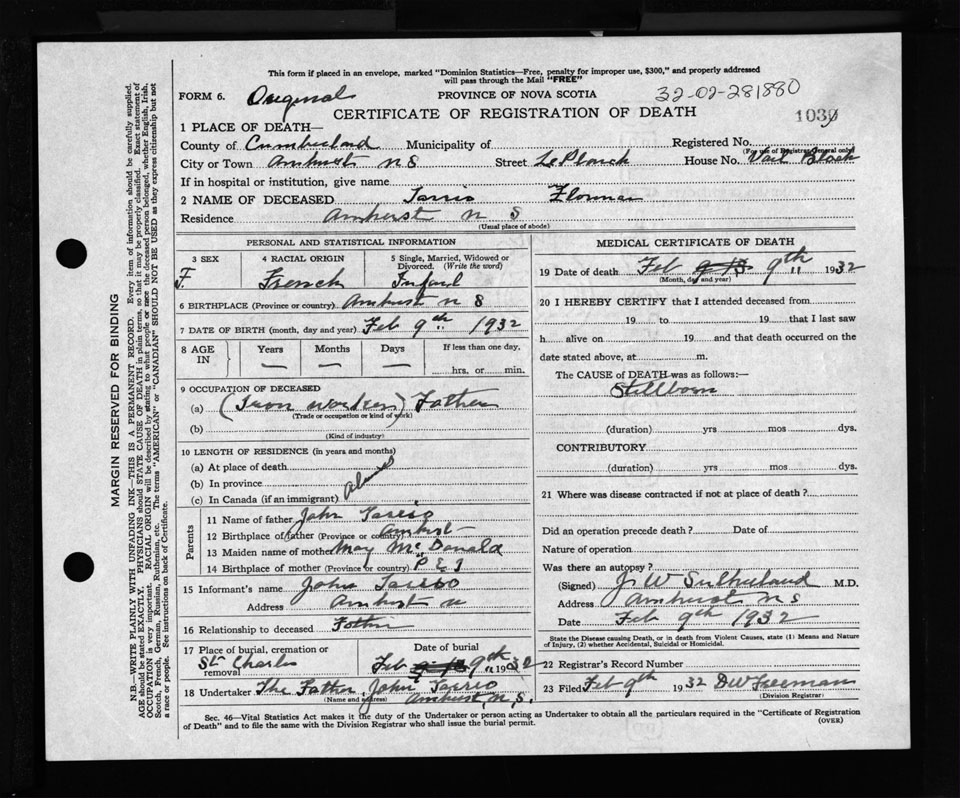 This form if placed in an envelope, marked "Dominion Statistics—Free, penalty for improper use, $300," and properly addressed
will pass through the Mail "FREE"
FORM 6. Original PROVINCE OF NOVA SCOTIA 32-02-281880
CERTIFICATE OF REGISTRATION OF DEATH 1039
1 PLACE OF DEATH—
County of Cumberland Municipality of Registered No.
(For use of Registrar General only)
City or Town Amherst N S Street LePlanch House No. Vail Block
If in hospital or institution, give name
2 NAME OF DECEASED Tarrio
Residence Amherst N S
(Usual place of abode)
PERSONAL AND STATISTICAL INFORMATION
3 SEX 4 RACIAL ORIGIN 5 Single, Married, Widowed or
Divorced. (Write the word)
F. French Infant
6 BIRTHPLACE (Province or country) Amherst N S
7 DATE OF BIRTH (month, day and year) Feb 9th 1932
8 AGE IN Years Months Days If less than one day,
— — — hrs. or min.
9 OCCUPATION OF DECEASED
(a) (Iron worker) Father
(Trade or occupation or kind of work)
(b)
(Kind of industry)
10 LENGTH OF RESIDENCE (in years and months)
(a) At place of death
(b) In province
(c) In Canada (if an immigrant)
Parents
11 Name of father John Tarrio
12 Birthplace of father (Province or country) Amherst
13 Maiden name of mother May McDonald
14 Birthplace of mother (Province or country) P E I
15 Informant's name John Tarrio
Address Amherst N
16 Relationship to deceased Father
17 Place of burial, cremation or removal Date of burial
St Charles Feb 9th 1932
18 Undertaker The Father, John Tarrio
(Name and address) Amherst, N. S.
MEDICAL CERTIFICATE OF DEATH
19 Date of death Feb 9th 1932
(Month, day and year)
20 I HEREBY CERTIFY that I attended deceased from
19 to 19 that I last saw
h alive on 19 and that death occurred on the
date stated above, at m.
The CAUSE of DEATH was as follows:—
Stillborn
(duration) yrs mos dys.
CONTRIBUTORY
(duration) yrs mos dys.
21 Where was disease contracted if not at place of death?
Did an operation precede death? Date of
Nature of operation
Was there an autopsy?
(Signed) J. W Sutherland M.D.
Address Amherst N S
Date Feb 9th 1932
State the Disease causing Death, or in death from Violent Causes, state (1) Means and Nature
of Injury, (2) whether Accidental, Suicidal or Homicidal.
22 Registrar's Record Number
23 Filed Feb 9th 1932 D W Freeman
(Division Registrar)
Sec. 46—Vital Statistics Act makes it the duty of the Undertaker or person acting as Undertaker to obtain all the particulars required in the "Certificate of Registration
of Death" and to file the same with the Division Registrar who shall issue the burial permit. (OVER)
MARGIN RESERVED FOR BINDING
N.B.—WRITE PLAINLY WITH UNFADING INK—THIS IS A PERMANENT RECORD. Every item of information should be carefully supplied.
AGE should be stated EXACTLY. PHYSICIANS should STATE CAUSE OF DEATH in plain terms, so that it may be properly classified. Exact statement of
OCCUPATION is very important. RACIAL ORIGIN will be described by stating to what people or race the deceased person belonged, whether English, Irish,
Scotch, French, German, Russian, Ruthenian, etc. The terms "AMERICAN" or "CANADIAN" SHOULD NOT BE USED as they express citizenship but not
a race or people. See instructions on back of Certificate.